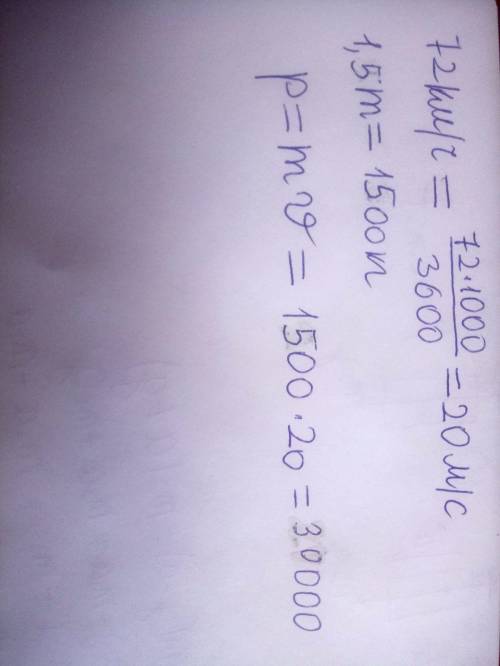 72км/ч = 72·1000/3600 = 20 м/с
1,5т = 1500п
p = mϑ = 1500·20 = 30000